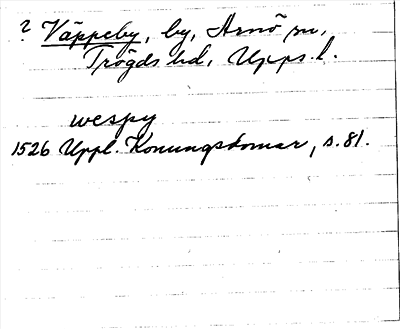 ? Väppeby, by, Arnö sn,
Trögds hd, Upps. l.
wespy
1526 Uppl. Konungsdomar, s. 81.